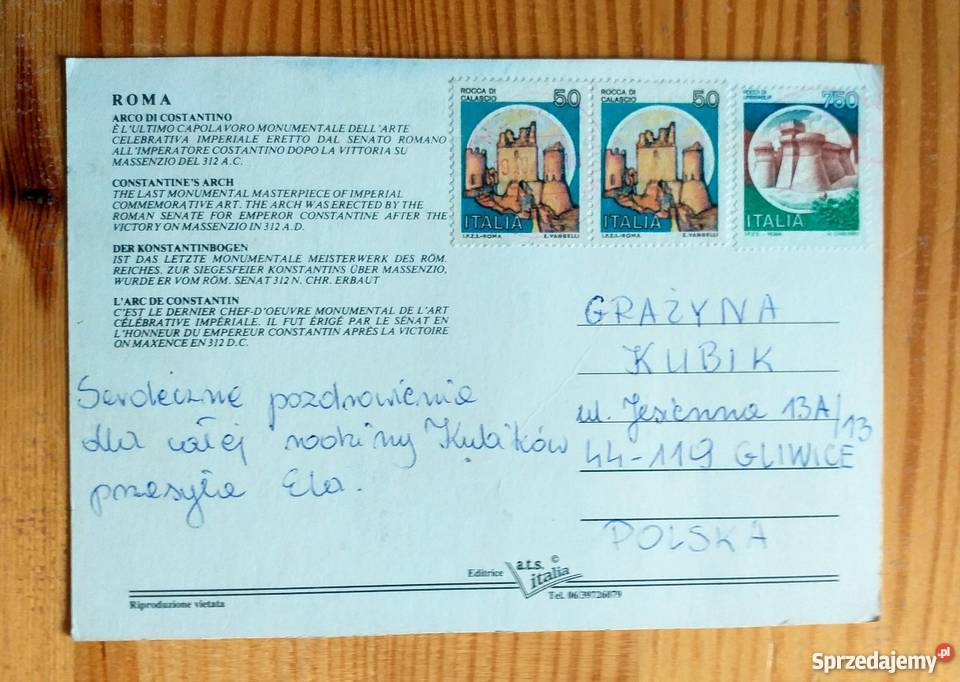 ROMA
ARCO DI COSTANTINO
È L'ULTIMO CAPOLAVORO MONUMENTALE DELL'ARTE
CELEBRATIVA IMPERIALE ERETTO DAL SENATO ROMANO
ALL'IMPERATORE COSTANTINO DOPO LA VITTORIA SU
MASSENZIO DEL 312 A.C.
CONSTANTINE'S ARCH
THE LAST MONUMENTAL MASTERPIECE OF IMPERIAL
COMMEMORATIVE ART. THE ARCH WAS ERECTED BY THE
ROMAN SENATE FOR EMPEROR CONSTANTINE AFTER THE
VICTORY ON MASSENZIO IN 312 A.D.
DER KONSTANTINBOGEN
IST DAS LETZTE MONUMENTALE MEISTERWERK DES RÖM.
REICHES. ZUR SIEGESFEIER KONSTANTINS ÜBER MASSENZIO,
WURDE ER VOM RÖM. SENAT 312 N. CHR. ERBAUT
L'ARC DE CONSTANTIN
C'EST LE DERNIER CHEF-D'OEUVRE MONUMENTAL DE L'ART
CÉLÉBRATIVE IMPÉRIALE. IL FUT ÉRIGÉ PAR LE SÉNAT EN
L'HONNEUR DU EMPEREUR CONSTANTIN APRÉS LA VICTOIRE
ON MAXENCE EN 312 D.C.
ROCCA DI
CALASCIO
50
ITALIA
I.P.Z.S.-ROMA E. VANGELLI
ROCCA DI
CALASCIO
50
ITALIA
I.P.Z.S.-ROMA E. VANGELLI
ROCCA DI
750
ITALIA
I.P.Z.S. - ROMA
Serdeczne pozdrowienia
dla całej rodziny Kubików
przesyła Ela.
GRAŻYNA
KUBIK
ul. Jesienna 13A/13
44-119 GLIWICE
POLSKA
Editrice a.t.s. © italia
Tel. 06/39726079
Riproduzione vietata
Sprzedajemy.pl